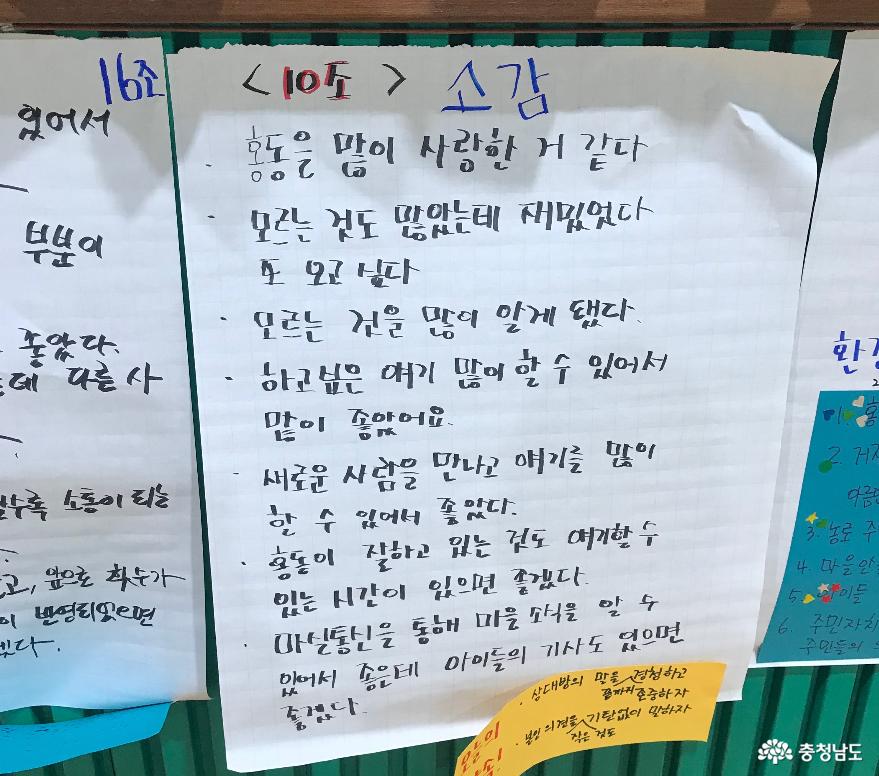 16조
있어서
부분이
좋았다.
는데 다른 사
수록 소통이 되는
고, 앞으로 횟수가
이 반영되었으면
<10조> 소감
· 홍동을 많이 사랑한 거 같다
· 모르는 것도 많았는데 재밌었다
또 오고 싶다
· 모르는 것을 많이 알게 됐다.
· 하고싶은 얘기 많이 할 수 있어서
많이 좋았어요.
· 새로운 사람을 만나고 얘기를 많이
할 수 있어서 좋았다.
· 홍동이 잘하고 있는 것도 얘기할 수
있는 시간이 있으면 좋겠다.
· 마실통신을 통해 마을 소식을 알 수
있어서 좋은데 아이들의 기사도 있으면
좋겠다.
오늘의
· 상대방의 말을 경청하고
끝까지 존중하자
· 본인 의견을 기탄없이 말하자
작은 것도
환경
1. 홍
2. 거
아름
3. 농로 주
4. 마을안
5. 아이들
6. 주민자치
주민들의
충청남도